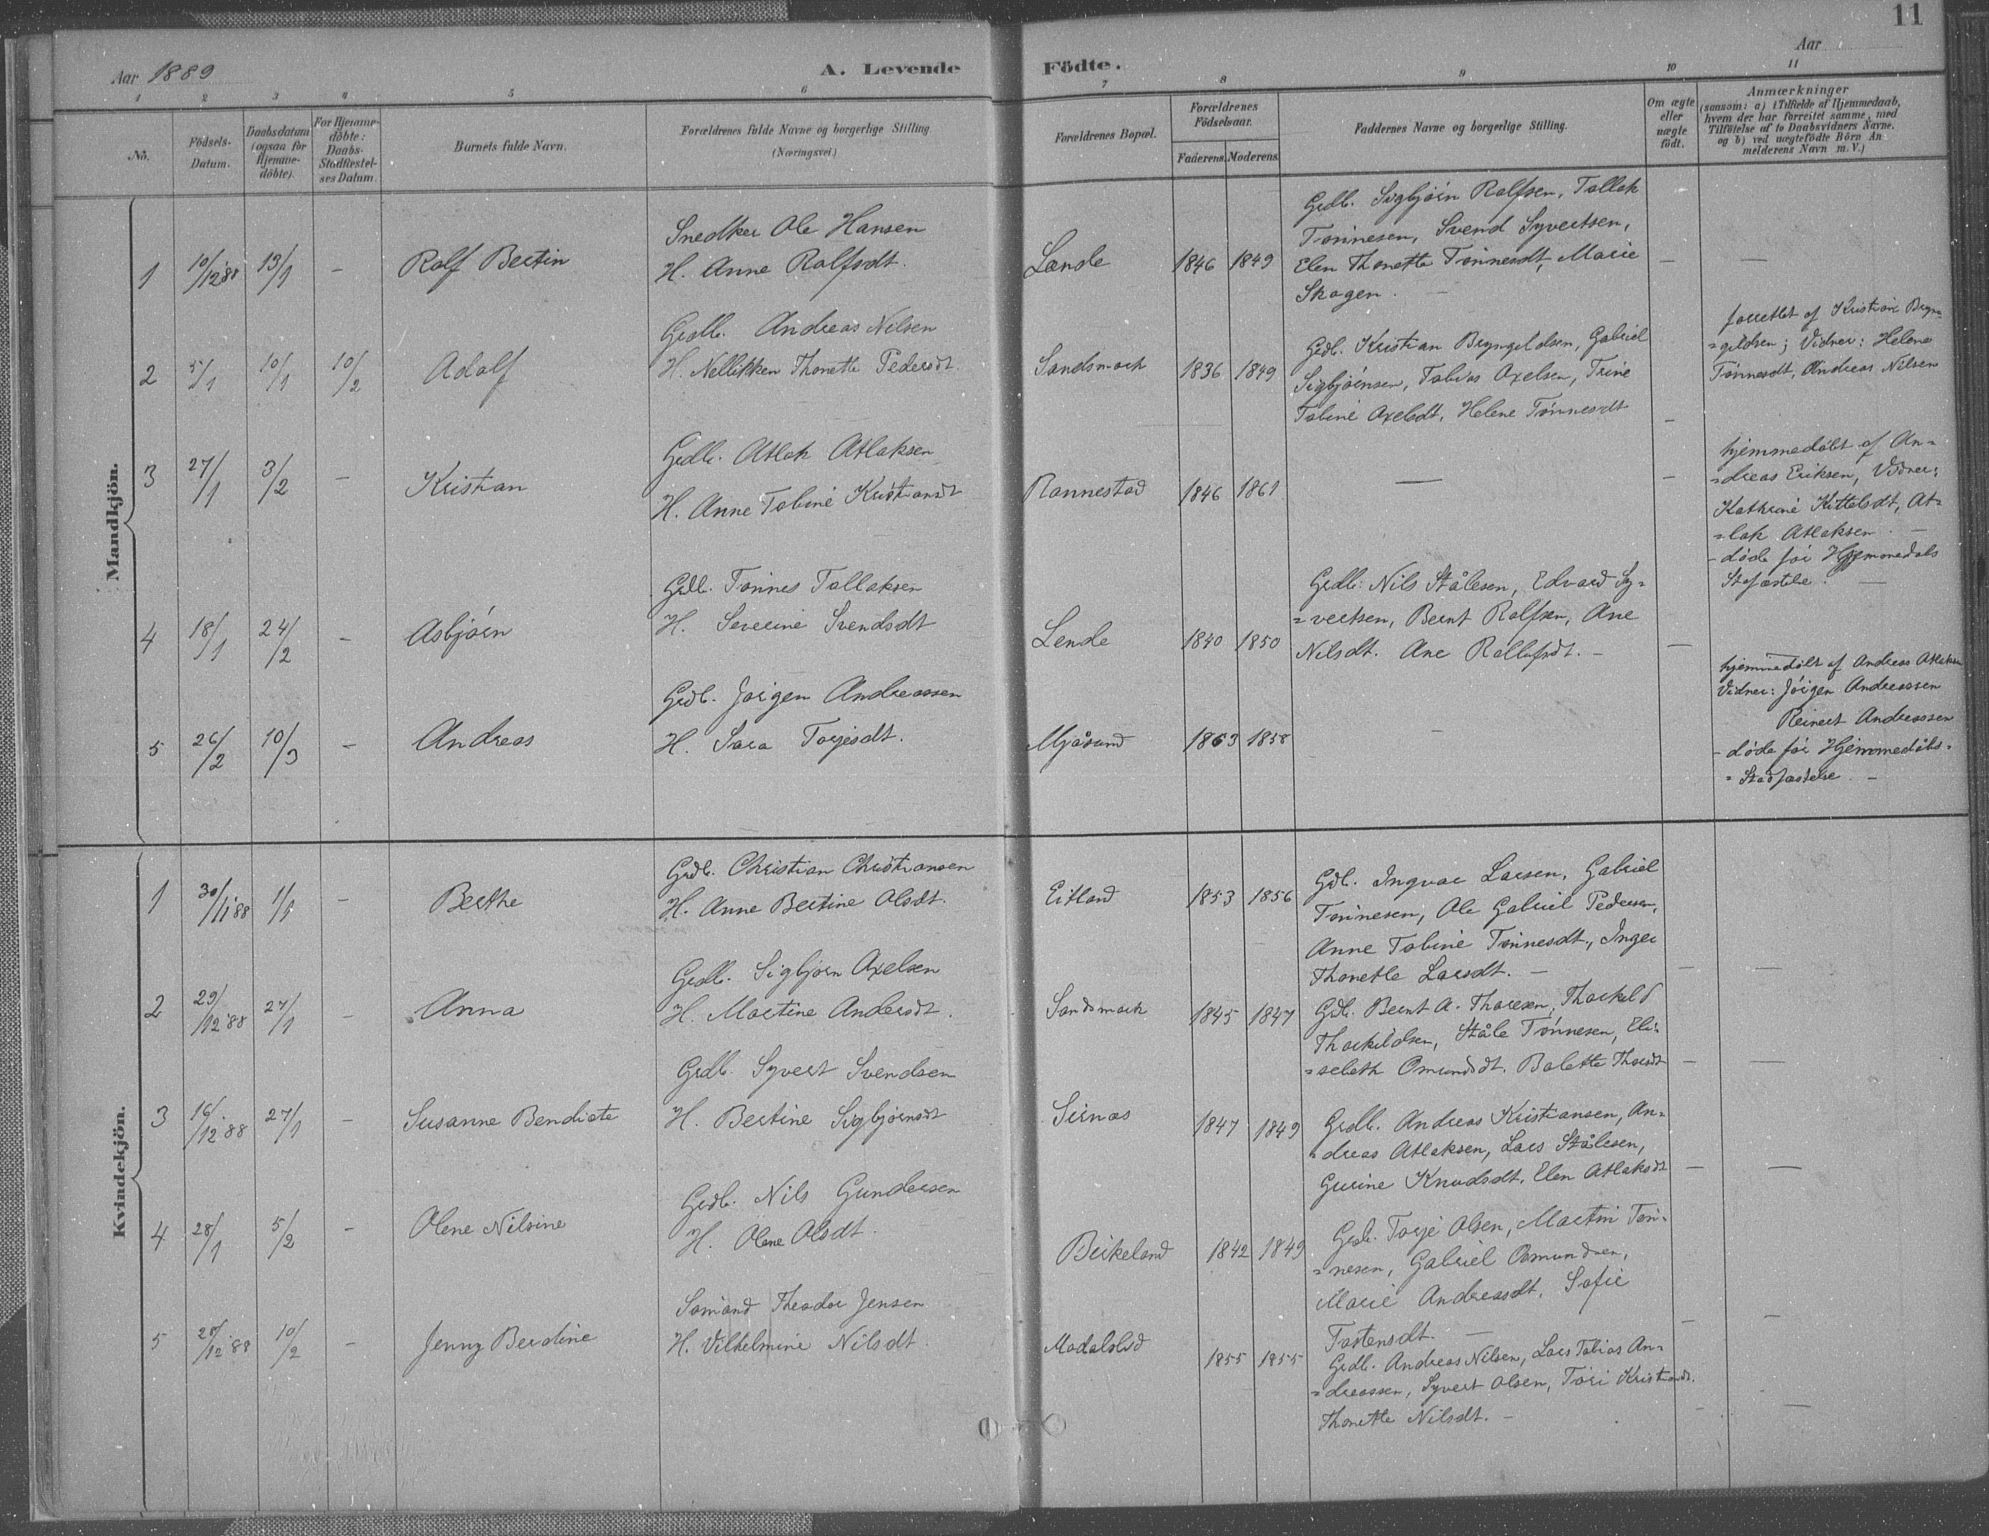 11
Aar 1889
A. Levende Födte.
Aar
1 2 3 4 5 6 7 8 9 10 11
No.
Födsels-Datum.
Daabsdatum (ogsaa for Hjemme-döbte).
For Hjemme-döbte: Daabs-Stadfæstel-ses Datum.
Barnets fulde Navn.
Forældrenes fulde Navne og borgerlige Stilling (Næringsvei).
Forældrenes Bopæl.
Forældrenes Födselsaar.
Faderens. Moderens.
Faddernes Navne og borgerlige Stilling.
Om ægte eller uægte födt.
Anmærkninger
(saasom: a) i Tilfælde af Hjemmedaab, hvem der har forrettet samme, med Tilföielse af to Daabsvidners Navne. og b) ved uægtefödte Börn Anmelderens Navn m. V.)
Mandkjön.
1 10/12 88 13/1 – Rolf Bertin
Snedker Ole Hansen
H. Anne Rolfsdt.
Lende 1846 1849
Grdb. Sigbjörn Rolfsen, Tollak
Tönnesen, Svend Syvertsen,
Elen Thonette Tönnesdt, Marie
Skogen. –
2 5/1 10/1 10/2 Adolf
Grdb. Andreas Nilsen
H. Nellikken Thonette Pedersdt.
Sandsmark 1836 1849
Grdb. Kristian Bryngeldsen, Gabriel
Sigbjörnsen, Tobias Axelsen, Trine
Tobine Axelsdt, Helene Tönnesdt
–
forrettet af Kristian Bryn=
=geldsen; Vidner: Helene
Tönnesdt, Andreas Nilsen
3 27/1 3/2 – Kristian
Grdb. Atlak Atlaksen
H. Anne Tobine Kristiansdt
Rannestad 1846 1861
– –
hjemmedöbt af An=
=dreas Eriksen, Vidner:
Kathrine Kittelsdt, At=
=lak Atlaksen. –
– döde för Hjemmedåbs
Stafæstelse. –
4 18/1 24/2 – Asbjörn
Grdb. Tönnes Tollaksen
H. Severine Svendsdt
Lende 1840 1850
Grdb. Nils Stålesen, Edvard Sy=
=vertsen, Bernt Rolfsen, Ane
Nilsdt. Ane Rollefsdt. –
–
5 26/2 10/3 – Andreas
Grdb. Jörgen Andreassen
H. Sara Torjesdt.
Mjåsund 1863 1858
–
hjemmedöbt af Andreas Atlaksen
Vidner: Jörgen Andreassen
Reinert Andreassen
– döde för Hjemmedåbs=
=Stadfæstelse. –
Kvindekjön.
1 30/11 88 1/1 – Berthe
Grdb. Christian Christiansen
H. Anne Bertine Olsdt.
Eitland 1853 1856
Gdb. Ingvar Larsen, Gabriel
Tönnesen, Ole Gabriel Pedersen,
Anne Tobine Tönnesdt., Inger
Thonette Larsdt. –
– –
2 29/12 88 27/1 – Anna
Grdb. Sigbjörn Axelsen
H. Martine Andersdt.
Sandsmark 1845 1847
Gdb. Bernt A. Thoresen, Thorkild
Thorkildsen, Ståle Tönnesen, Eli=
=sebeth Omundsdt. Bolette Thorsdt
– –
3 16/12 88 27/1 – Susanne Bendicte
Grdb. Syvert Svendsen
H. Bertine Sigbjörnsdt
Sirnæs 1847 1849
Grdb. Andreas Kristiansen, An=
=dreas Atlaksen, Lars Stålesen,
Gurine Knudsdt. Elen Atlaksdt
– –
4 28/1 5/2 – Olene Nilsine
Grdb. Nils Gundersen
H. Olene Olsdt.
Birkeland 1842 1849
Grdb. Torje Olsen, Martin Tön=
=nesen, Gabriel Osmundsen,
Marie Andreasdt. Sofie
Tostensdt. –
– –
5 28/12 88 10/2 – Jenny Berdine
Sömand Theodor Jensen
H. Vilhelmine Nilsdt.
1855 1855
Grdb. Andreas Nilsen, Lars Tobias An=
=dreassen, Syvert Olsen, Tori Kristiansdt.
Thonette Nilsdt. –
– –